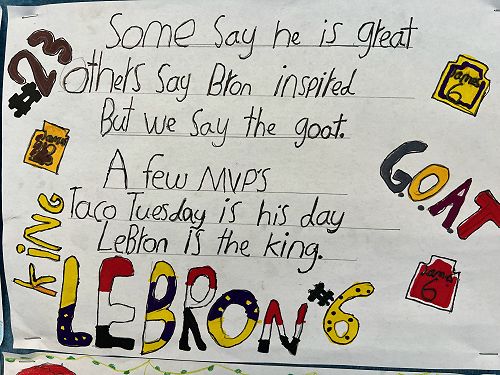 #23
Some say he is great
Others say Bron inspired
But we say the goat.
A few MVP's
Taco Tuesday is his day
LeBron is the king.
KiNG
G.O.A.T
James
6
James
6
LEBRON #6